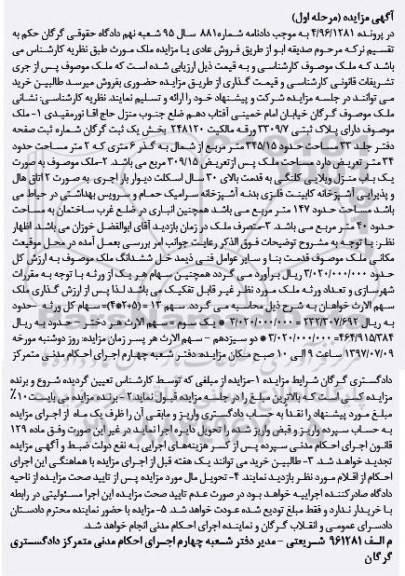 آگهی مزایده (مرحله اول)
در پرونده ۴/۹۶/۱۲۸۱ به موجب دادنامه شماره ۸۸۱ سال ۹۵ شعبه نهم دادگاه حقوقی گرگان حکم به
تقسیم ترکه مرحوم صدیقه ابو از طریق فروش عادی یا مزایده ملک مورث طبق نظریه کارشناس می
باشد که ملک موصوف کارشناسی و به قیمت ذیل ارزیابی شده است که ملک موصوف پس از جری
تشریفات قانونی کارشناسی و قیمت گذاری از طریق مزایده حضوری بفروش میرسد طالبین خرید
می توانند در جلسه مزایده شرکت و پیشنهاد خود را ارائه و تسلیم نمایند. نظریه کارشناسی: نشانی
ملک موصوف گرگان خیابان امام خمینی آفتاب دهم ضلع جنوب منزل حاج اقا نورمفیدی ۱- ملک
موصوف دارای پلاک ثبتی ۲۳۰۹/۷ ورقه مالکیت ۲۴۸۱۲۰ بخش یک ثبت گرگان شماره ثبت صفحه
دفتر جلد ۲۳ مساحت حدود ۳۴۵/۱۵ متر مربع از شمال به گذر ۶ متری که ۲ متر مساحت حدود
۳۴ متر تعریض دارد مساحت ملک پس از تعریض ۳۰۹/۱۵ مربع می باشد. ۲-ملک موصوف به صورت
یک باب منزل ویلایی کلنگی به قدمت بالای ۳۰ سال اسکلت دیوار بار اجری به صورت ۲ اتاق هال
و پذیرایی آشپزخانه کابینت فلزی بدنه آشپزخانه سرامیک حمام و سرویس بهداشتی در حیاط می
باشد مساحت حدود ۱۴۷ متر مربع می باشد همچنین انباری در ضلع غرب ساختمان به مساحت
حدود ۴۰ متر مربع می باشد. ۳-متصرف ملک در زمان بازدید آقای ابوالفضل خوزان می باشد. اظهار
نظر: با توجه به مشروح توضیحات فوق الذکر رعایت جوانب امر بررسی بعمل آمده در محل موقیعت
مکانی ملک موصوف قدمت بنا و سایر عوامل فنی ذیمد خل ششدانگ ملک موصوف به ارزش کل
حدود ۳/۰۲۰/۰۰۰/۰۰۰ ریال برآورد می گردد همچنین سهام هر یک از ورثه با توجه به مقررات
شهرسازی و تعداد ورثه ملک مورد نظر غیر قابل تفکیک می باشد لذا پس از ارزش گذاری ملک
سهم الارث خواهان به شرح ذیل محاسبه می گردد. سهم ۱۳ = (۲۰۵+۴)= سهام کل ورثه -حدود
به ریال ۲۳۲/۳۰۷/۶۹۲ = ۳/۰۲۰/۰۰۰/۰۰۰ * یک سوم = سهم الارث هر دختر – حدود به ریال
۴۶۴/۹۱۵/۳۸۴= ۳/۰۲۰/۰۰۰/۰۰۰ * دو سیزدهم - سهم الارث هر پسر زمان مزایده: روز دوشنبه مورخه
۱۳۹۷/۰۷/۰۹ ساعت ۹ الی ۱۰ صبح مکان مزایده: دفتر شعبه چهارم اجرای احکام مدنی متمرکز
دادگستری گرگان شرایط مزایده ۱-مزایده از مبلغی که توسط کارشناس تعیین گردیده شروع و برنده
مزایده کسی است که بالاترین مبلغ را در جلسه مزایده قبول نماید ۲- برنده مزایده می بایست ۱۰٪
مبلغ مورد پیشنهاد را نقدا به حساب دادگستری واریز و مابقی آن را ظرف یک ماه از اجرای مزایده
به حساب سپرده واریز و قبض واریز شده را تحویل دایره اجرا نماید در غیر این صورت وفق ماده ۱۲۹
قانون اجرای احکام مدنی سپرده پس از کسر هزینه‌های اجرایی به نفع دولت ضبط و آگهی مزایده
تجدید خواهد شد. ۳- طالبین خرید می توانند یک هفته قبل از اجرای مزایده با هماهنگی این اجرای
احکام از اقلام مورد نظر بازدید نمایند. ۴- تحویل مال مورد مزایده پس از تایید صحت مزایده از ناحیه
دادگاه صادرکننده اجراییه خواهد بود در صورت عدم تایید صحت مزایده این اجرا مسئولیتی در رابطه
با خریدار ندارد و فقط مبلغ تودیع شده عودت خواهد شد. ۵- مزایده با حضور نماینده محترم دادستان
دادسرای عمومی و انقلاب گرگان و نماینده اجرای احکام مدنی انجام خواهد شد.
م الف ۹۶۱۲۸۱ شریعتی - مدیر دفتر شعبه چهارم اجرای احکام مدنی متمرکز دادگستری
گرگان